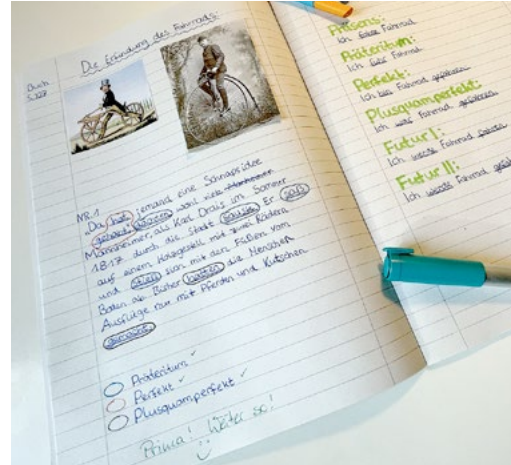 Die Erfindung des Fahrrads:
Buch
S. 127
Nr. 1
„Da hat jemand eine Schnapsidee
gehabt", dachten wohl viele
Mannheimer, als Karl Drais im Sommer
1817 durch die Stadt sauste. Er saß
auf einem Holzgestell mit zwei Rädern
und stieß sich mit den Füßen vom
Boden ab. Bisher hatten die Menschen
Ausflüge nur mit Pferden und Kutschen
gemacht.
Präteritum ✓
Perfekt ✓
Plusquamperfekt ✓
Prima! Weiter so!
Präsens:
Ich fahre Fahrrad.
Präteritum:
Ich fuhr Fahrrad.
Perfekt:
Ich bin Fahrrad gefahren.
Plusquamperfekt:
Ich war Fahrrad gefahren.
Futur I:
Ich werde Fahrrad fahren.
Futur II:
Ich werde Fahrrad